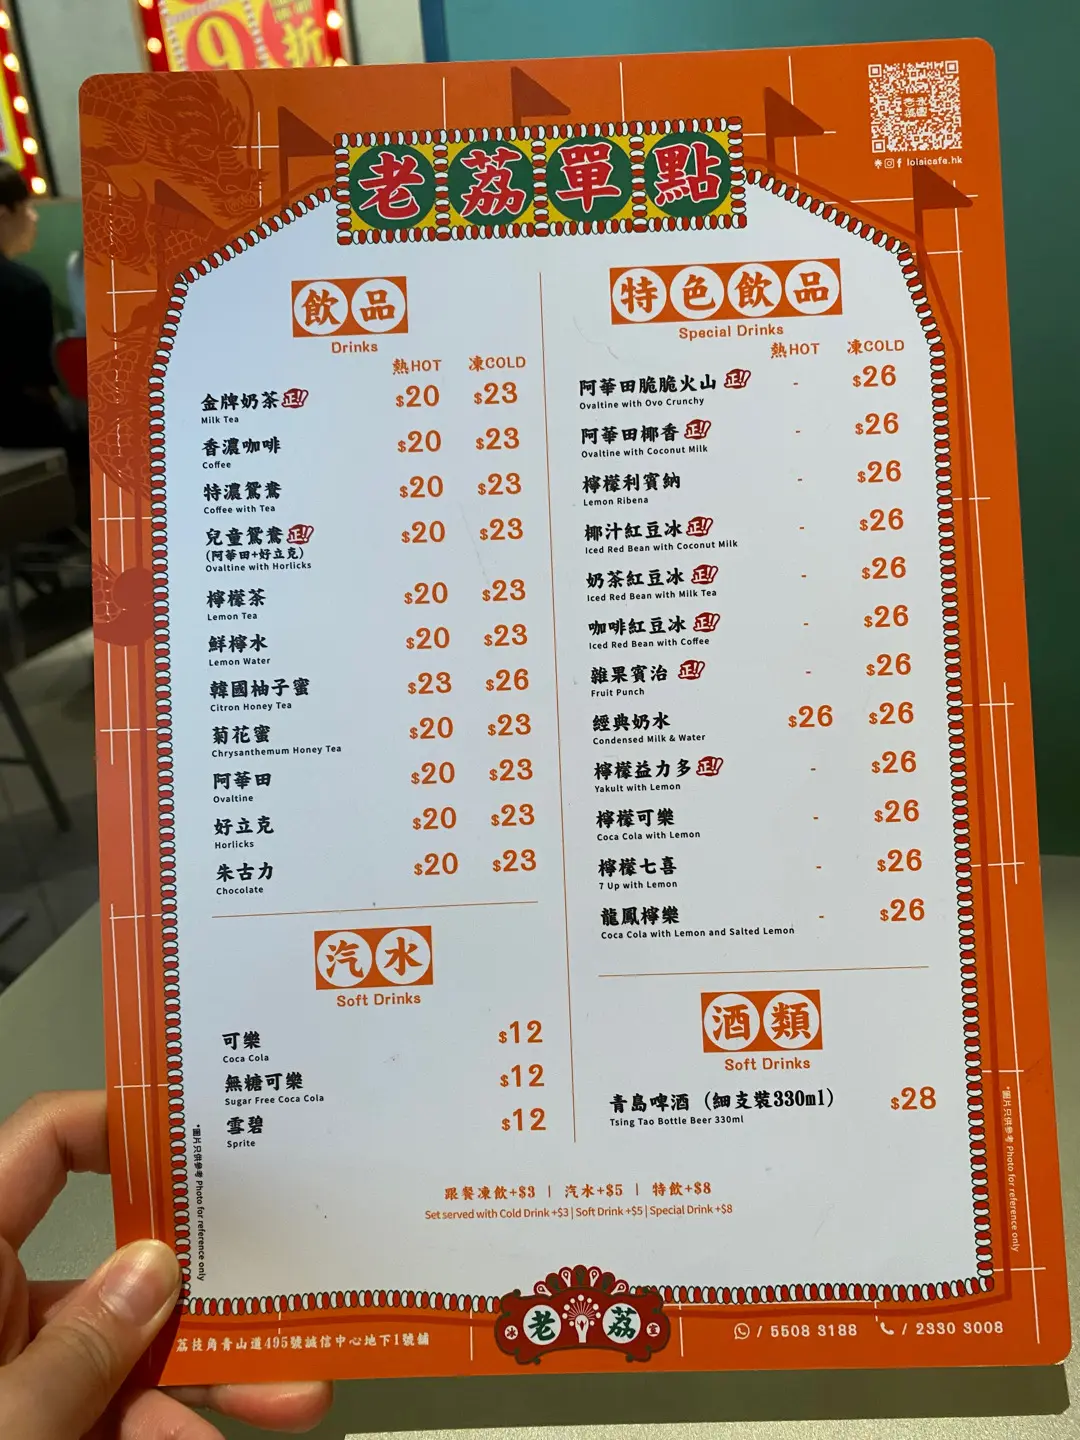 9 折
老荔單點
loisicafe.hk
飲品
Drinks
熱HOT 凍COLD
金牌奶茶 正!! $20 $23
Milk Tea
香濃咖啡 $20 $23
Coffee
特濃鴛鴦 $20 $23
Coffee with Tea
兒童鴛鴦 正!! $20 $23
(阿華田+好立克)
Ovaltine with Horlicks
檸檬茶 $20 $23
Lemon Tea
鮮檸水 $20 $23
Lemon Water
韓國柚子蜜 $23 $26
Citron Honey Tea
菊花蜜 $20 $23
Chrysanthemum Honey Tea
阿華田 $20 $23
Ovaltine
好立克 $20 $23
Horlicks
朱古力 $20 $23
Chocolate
汽水
Soft Drinks
可樂 $12
Coca Cola
無糖可樂 $12
Sugar Free Coca Cola
雪碧 $12
Sprite
特色飲品
Special Drinks
熱HOT 凍COLD
阿華田脆脆火山 正!! - $26
Ovaltine with Ovo Crunchy
阿華田椰香 正!! - $26
Ovaltine with Coconut Milk
檸檬利賓納 - $26
Lemon Ribena
椰汁紅豆冰 正!! - $26
Iced Red Bean with Coconut Milk
奶茶紅豆冰 正!! - $26
Iced Red Bean with Milk Tea
咖啡紅豆冰 正!! - $26
Iced Red Bean with Coffee
雜果賓治 正!! - $26
Fruit Punch
經典奶水 $26 $26
Condensed Milk & Water
檸檬益力多 正!! - $26
Yakult with Lemon
檸檬可樂 - $26
Coca Cola with Lemon
檸檬七喜 - $26
7 Up with Lemon
龍鳳檸樂 - $26
Coca Cola with Lemon and Salted Lemon
酒類
Soft Drinks
青島啤酒 (細支裝330ml) $28
Tsing Tao Bottle Beer 330ml
跟餐凍飲+$3 | 汽水+$5 | 特飲+$8
Set served with Cold Drink +$3 | Soft Drink +$5 | Special Drink +$8
*圖片只供參考 Photo for reference only
*圖片只供參考 Photo for reference only
荔枝角青山道495號誠信中心地下1號舖
老荔
/ 5508 3188 / 2330 3008